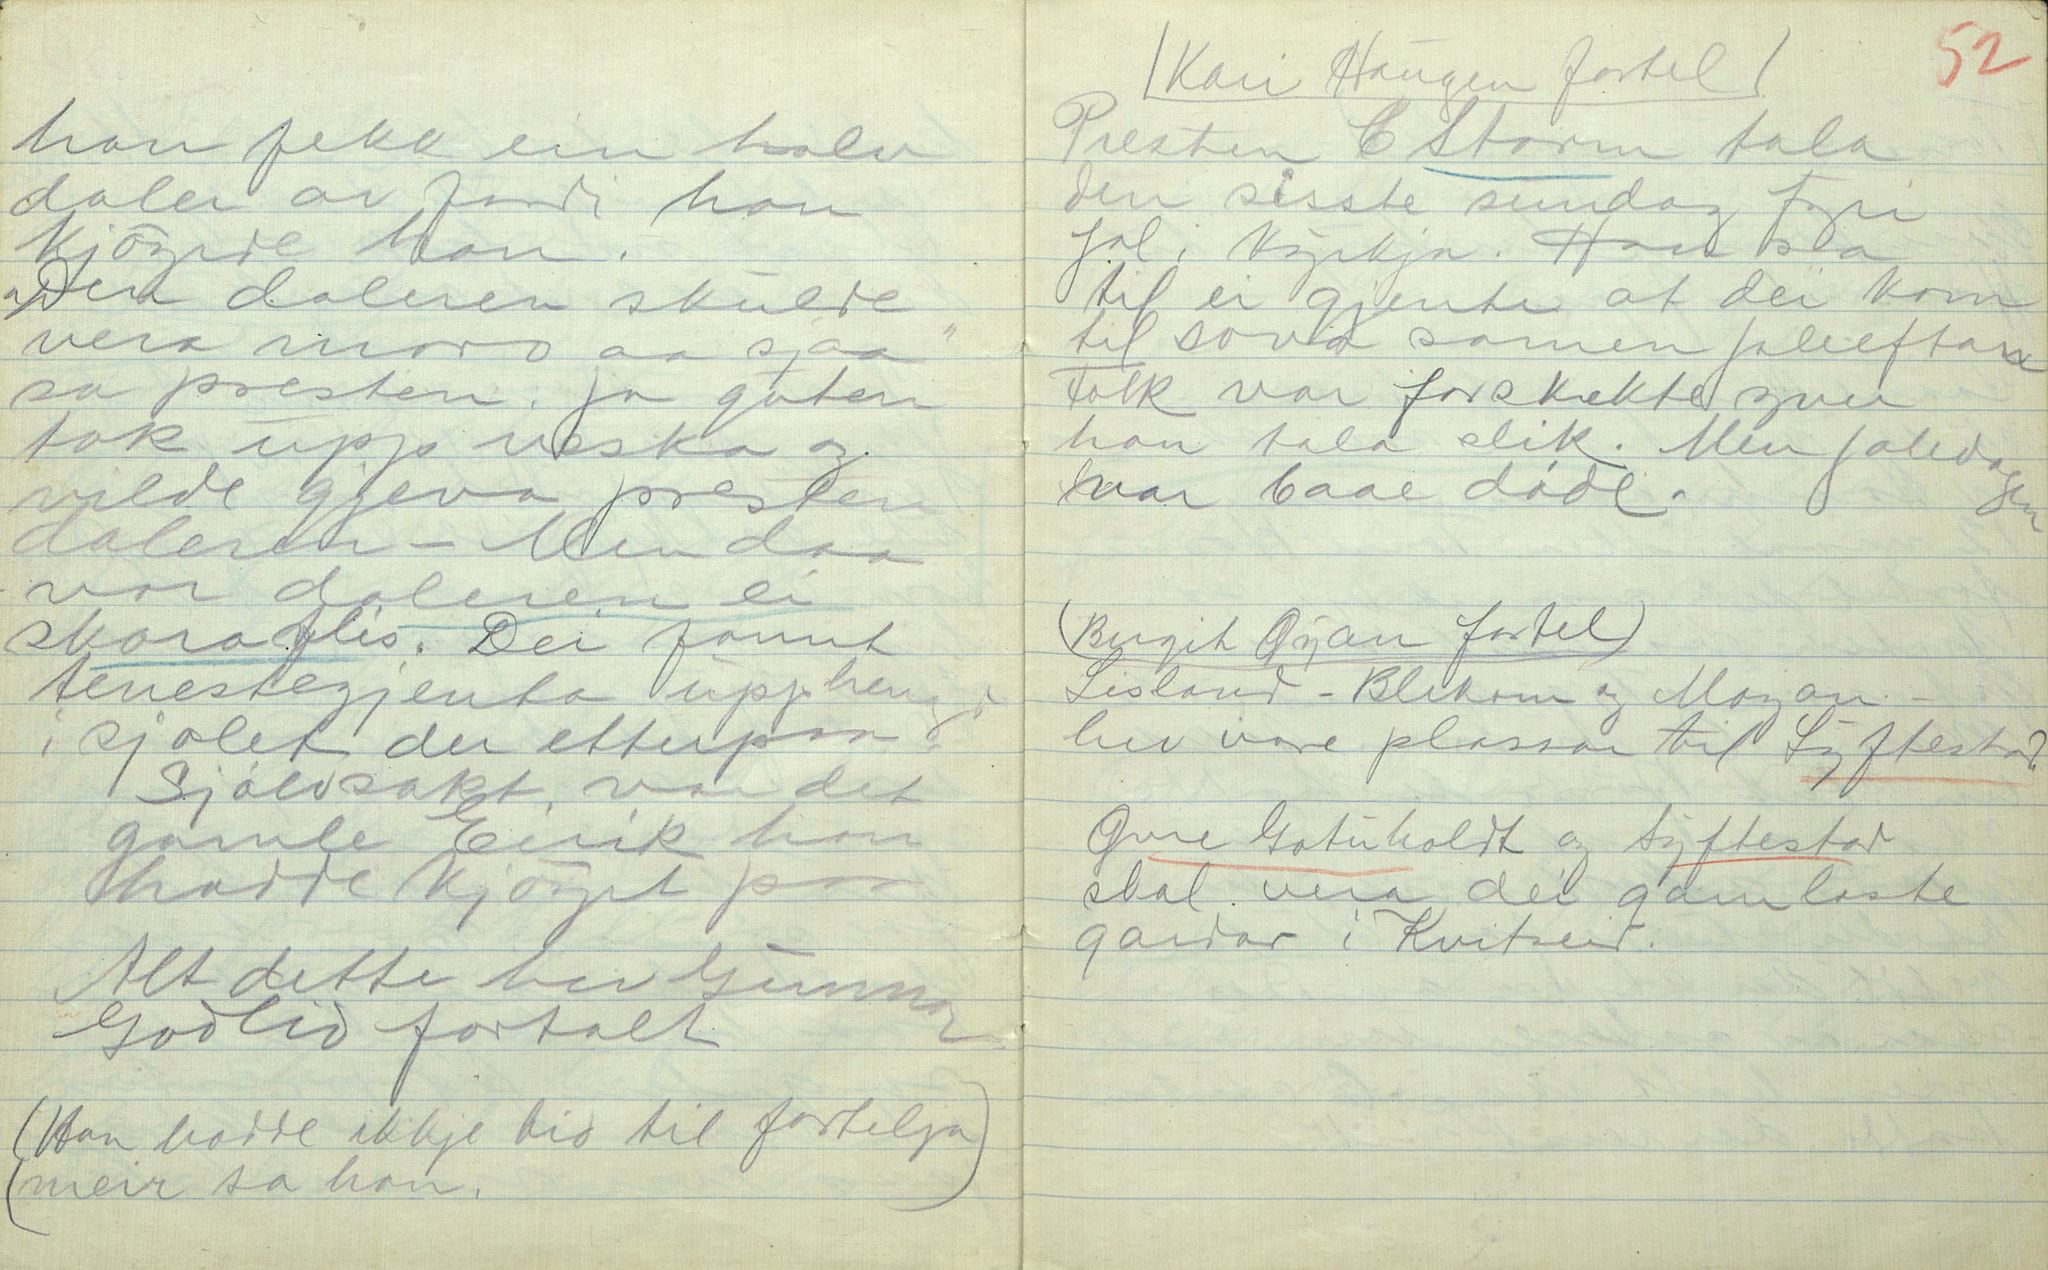 han fekk ein halv
daler av fordi han
kjöyrde han.
"Den daleren skulde
vera moro aa sjaa"
sa presten. Ja guten
tok upp veska og
vilde gjeva presten
daleren - Men daa
var daleren ei
skoraflis. Dei fannt
tenestegjenta upphengd
i sjölet der etterpaa.
Sjölvsakt, var det
gamle Eirik han
hadde kjöyrt paa
Alt dette hev Gunnar
Godlid fortalt
(Han hadde ikkje tid til fortelja
meir sa han.)
52
(Kari Haugen fortel)
Presten C Storm tala
den sisste sundag fyri
jol i kyrkja. Han sa
til ei gjente at dei kom
til sova samen joleeftane
Folk var forskrekte yver
han tala slik. Men joledagen
var baae döde.
(Birgit Öyan fortel)
Lisland - Blikom og Moyan -
hev vore plassar til Syftestad
Övre Gotuholdt og Syftestad
skal vera dei gamlaste
gardar i Kvitseid.